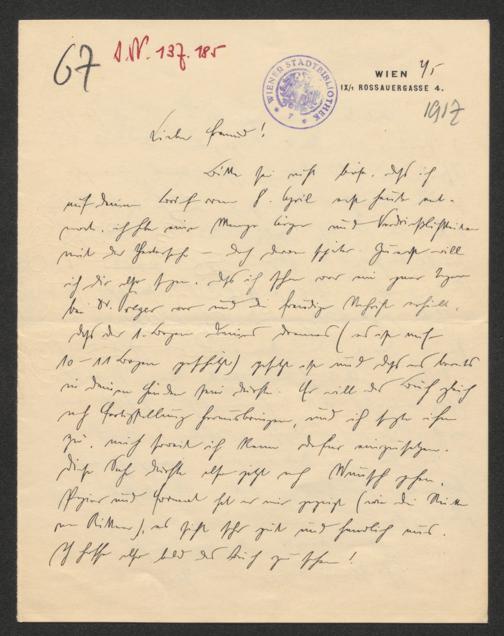 67
I.N. 137.185
WIENER STADTBIBLIOTHEK
* 7 *
WIEN 4/5
IX/1 ROSSAUERGASSE 4.
1917
Lieber Freund!
Bitte sei nicht böse, daß ich
auf deinen Brief vom 8. April erst heute
ich hatte eine Menge und Verdrießlichkeiten
mit der – doch davon später. Zuerst will
ich dir aber sagen, daß ich schon vor ein paar Tagen
bei Dr. war und die freudige Nachricht erhielt,
daß der 1. Bogen deines Dramas (es ist auf
10–11 Bogen geschätzt) gesetzt ist und daß er bereits
in deinen Händen sein dürfte. Er will das Buch gleich
nach Fertigstellung herausbringen, und ich sagte ihm
zu, mich soweit ich kann dafür einzusetzen.
Diese Sache dürfte also jetzt nach Wunsch gehen.
Papier und Format hat er mir gezeigt (wie die
), es sieht sehr gut und handlich aus.
Ich hoffe aber bald das Buch zu sehen!